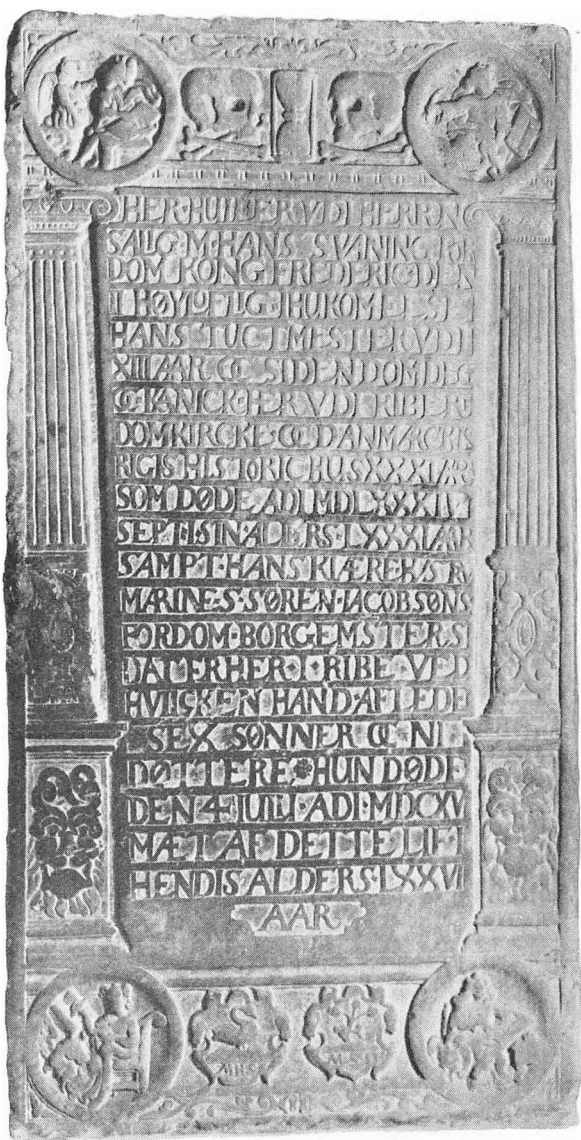 HER HUILER VDI HERREN
SALIG M HANS SVANING FOR
DOM KONG FREDERICH DEN
II HØYLOFLIG IHUKOMELSSE
HANS TUCTMESTER VDI
XIII AAR OC SIDEN DOM DEG
OC KANICK HER VDI RIBE
DOMKIRCKE OC DANMARCKIS
RIGIS HISTORICHUS XXXI AAR
SOM DØDE ADI MDLXXXIIII
SEPTIS IN ALDERS LXXXI AAR
SAMPT HANS KIÆRE HØSTRV
MARINE S SØREN IACOBSØNS
FORDOM BORGEMSTERS
DATER HER I RIBE VED
HVILCKEN HAND AFLEDE
SEX SØNNER OC NI
DØTTERE HUN DØDE
DEN 4 IULIJ ADI MDCXV
MÆT AF DETTE LIFF
HENDIS ALDERS LXXVII
AAR
MHS MSD